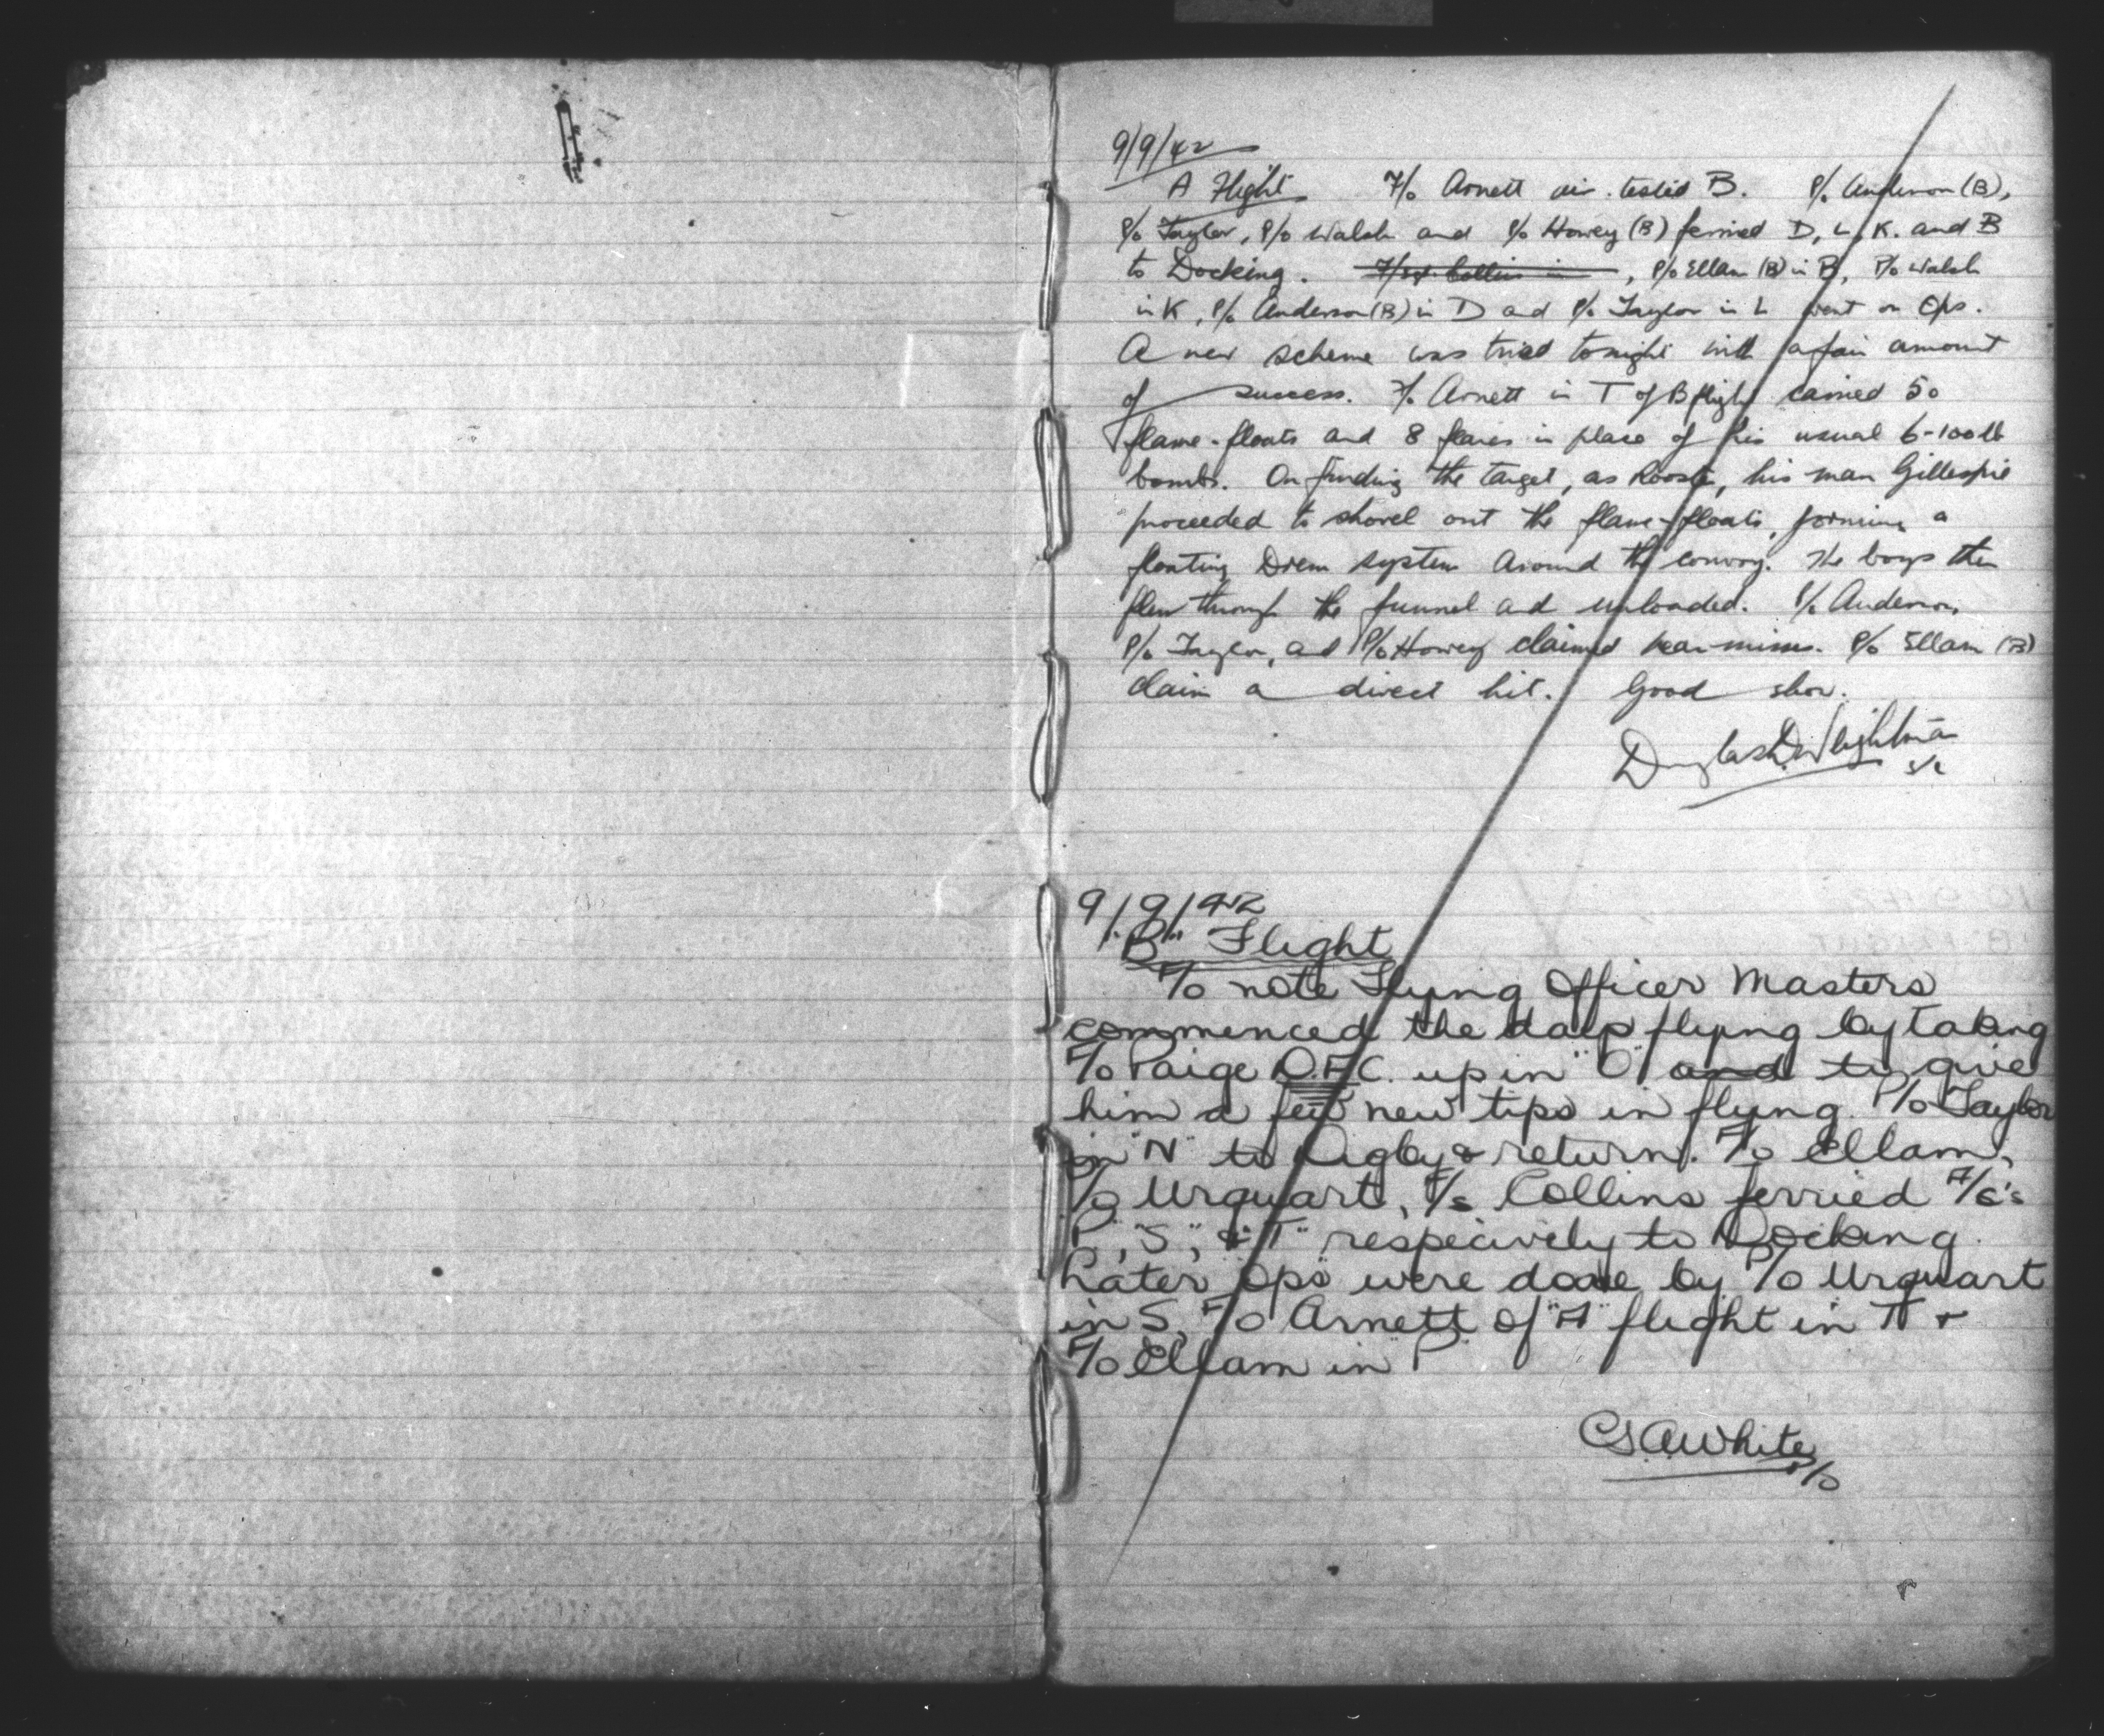 9/9/42
A Flight F/O Arnett air-tested B. P/O Anderson (B),
P/O Taylor, P/O Walsh and P/O Howey (B) ferried D, L, K. and B
to Docking. F/Sgt. Collins in , P/O Ellam (B) in B, P/O Walsh
in K, P/O Anderson (B) in D and P/O Taylor in L went on Ops.
A new scheme was tried tonight with a fair amount
of success. F/O Arnett in T of B flight carried 50
flame-floats and 8 flares in place of his usual 6-100 lb
bombs. On finding the target, as Rooste, his man Gillespie
proceeded to shovel out the flame-floats, forming a
floating Drem system around the convoy. The boys then
flew through the funnel and unloaded. P/O Anderson,
P/O Taylor, and P/O Howey claimed near-misses. P/O Ellam (B)
claim a direct hit. Good show.
Douglas D. Wightman
9/9/42
"B" Flight
F/O note Flying Officer Masters
commenced the days flying by taking
F/O Paige D.F.C. up in "O" and to give
him a few new tips in flying. P/O Taylor
in "N" to Digby & return. F/O Ellam,
P/O Urquart, F/S Collins ferried A/C's
"P", "S", & "T" respecively to Docking.
Later "Ops" were done by P/O Urquart
in S, F/O Arnett of "A" flight in T +
F/O Ellam in P.
C.S.A. White
P/O